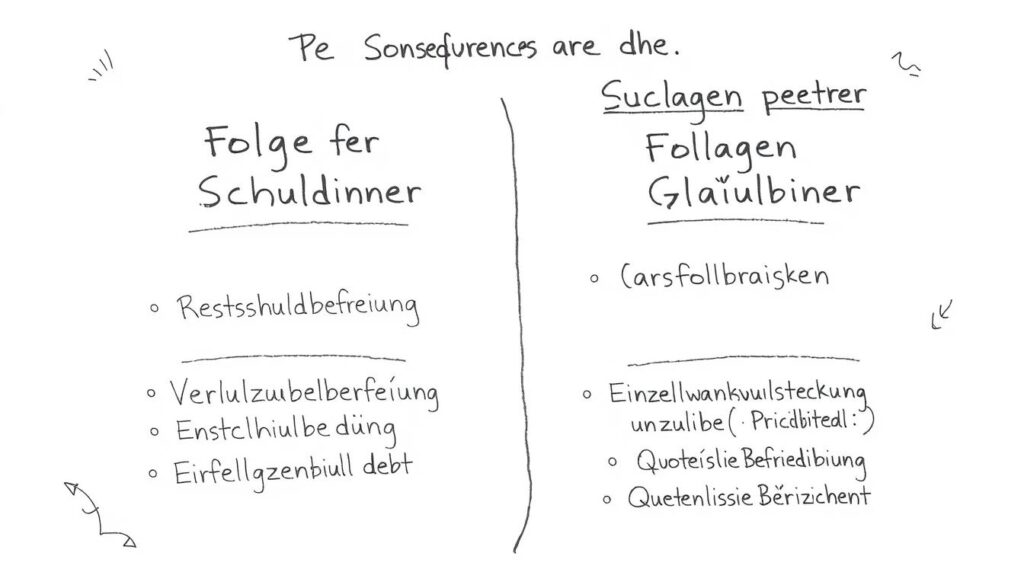 Pe Sonsequrences are dhe.
Folge fer
Schuldinner
Restsshuldbefreiung
Verlulzubelberfeíung
Enstclhiulbe düng
Eirfellgzenbiull debt
Suclagen peetrer
Follagen
Glaïulbiner
Carsfollbraisken
Einzellwankvuilsteckung
unzulibe(·Pricdbitedl:)
Quoteíslie Befriedibiung
Quetenlissie Bërizichent